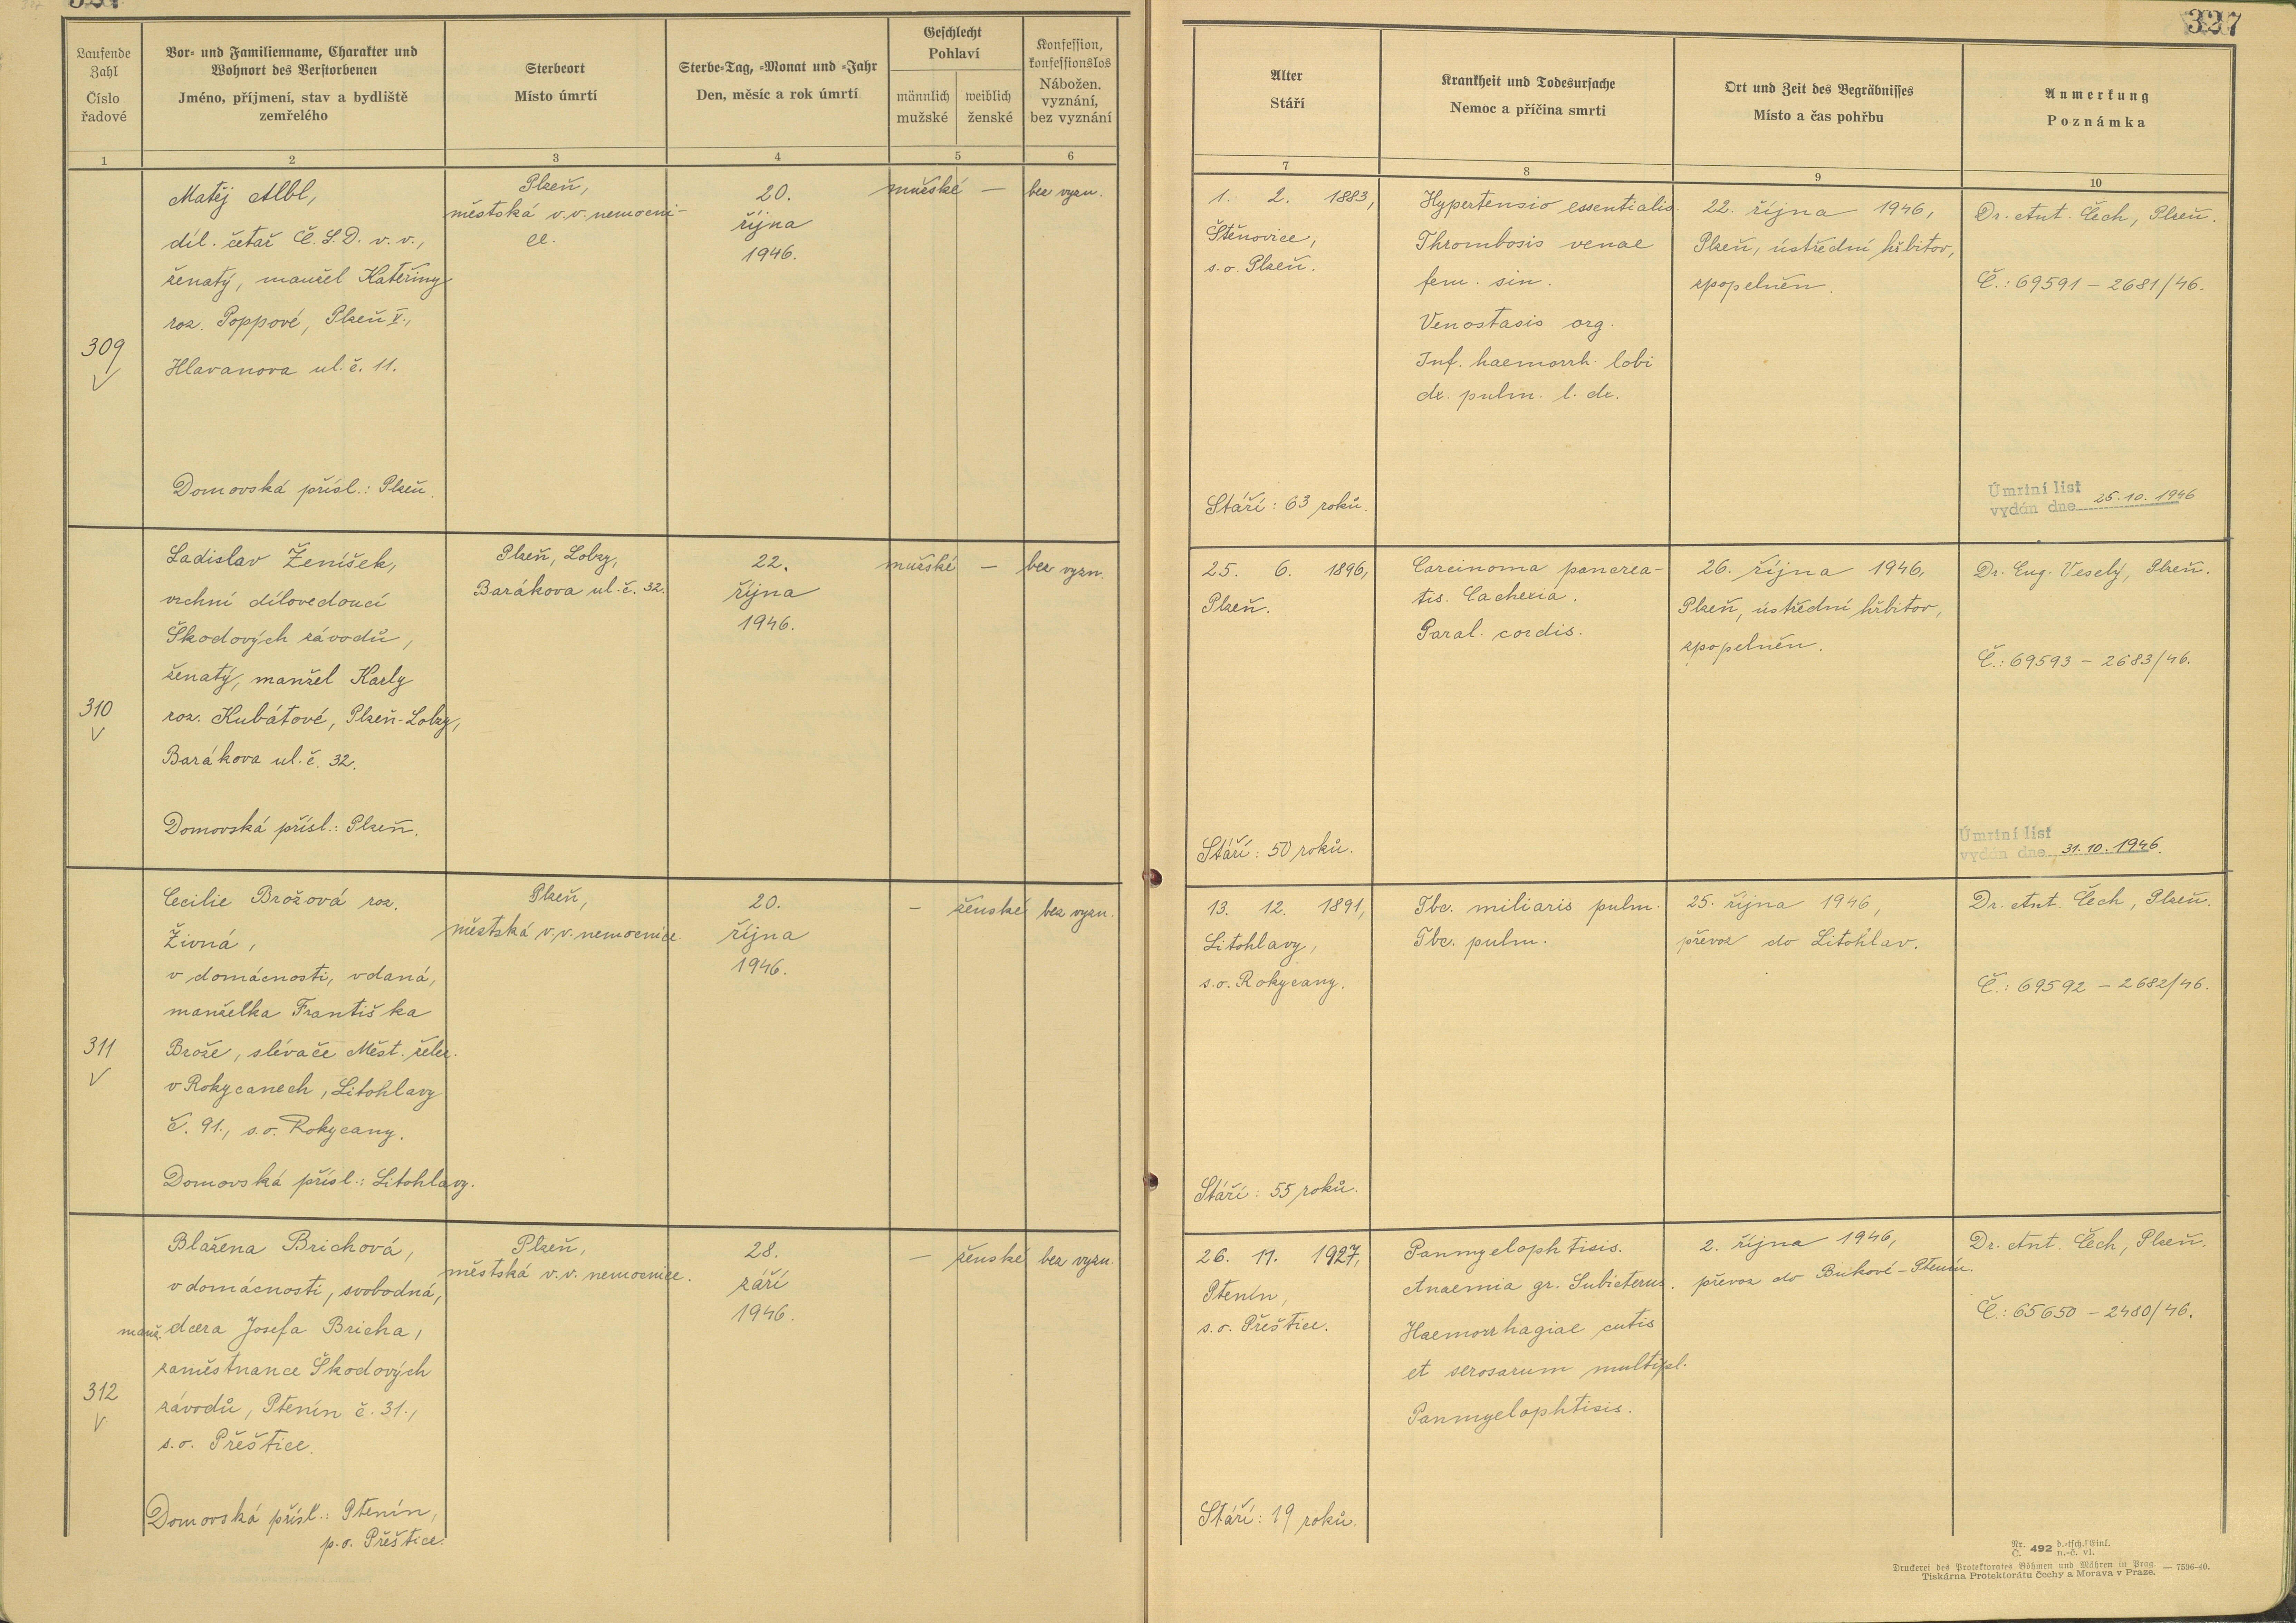 327
Laufende
Zahl
Číslo
řadové
Vor- und Familienname, Charakter und
Wohnort des Verstorbenen
Jméno, příjmení, stav a bydliště
zemřelého
Sterbeort
Místo úmrtí
Sterbe-Tag, -Monat und -Jahr
Den, měsíc a rok úmrtí
Geschlecht
Pohlaví
männlich
mužské
weiblich
ženské
Konfession,
konfessionslos
Nábožen.
vyznání,
bez vyznání
Alter
Stáří
Krankheit und Todesursache
Nemoc a příčina smrti
Ort und Zeit des Begräbnisses
Místo a čas pohřbu
Anmerkung
Poznámka
1
2
3
4
5
6
7
8
9
10
309
V
Matěj Albl,
díl. četař Č.S.D. v. v.,
ženatý, manžel Kateřiny
roz. Poppové, Plzeň V.,
Hlavanova ul. č. 11.
Domovská přísl.: Plzeň.
Plzeň,
městská v.v. nemocni-
ce.
20.
října
1946.
mužské —
bez vyzn.
1. 2. 1883,
Štěnovice,
s. o. Plzeň.
Stáří: 63 roků.
Hypertensio essentialis.
Thrombosis venae
fem. sin.
Venostasis org.
Inf. haemorrh. lobi
dx. pulm. l. dx.
22. října 1946,
Plzeň, ústřední hřbitov,
zpopelněn.
Dr. Ant. Čech, Plzeň.
Č.: 69591 - 2681/46.
Úmrtní list
vydán dne 25.10.1946
310
V
Ladislav Ženíšek,
vrchní dílovedoucí
Škodových závodů,
ženatý, manžel Karly
roz. Kubátové, Plzeň-Lobzy,
Barákova ul. č. 32.
Domovská přísl.: Plzeň.
Plzeň, Lobzy,
Barákova ul. č. 32.
22.
října
1946.
mužské —
bez vyzn.
25. 6. 1896,
Plzeň.
Stáří: 50 roků.
Carcinoma pancrea-
tis. Cachexia.
Paral. cordis.
26. října 1946,
Plzeň, ústřední hřbitov,
zpopelněn.
Dr. Eug. Veselý, Plzeň.
Č.: 69593 - 2683/46.
Úmrtní list
vydán dne 31.10.1946.
311
V
Cecilie Brožová roz.
Živná,
v domácnosti, vdaná,
manželka Františka
Brože, slévače Měst. želez.
v Rokycanech, Litohlavy
č. 91., s.o. Rokycany.
Domovská přísl.: Litohlavy.
Plzeň,
městská v.v. nemocnice.
20.
října
1946.
— ženské
bez vyzn.
13. 12. 1891,
Litohlavy,
s.o. Rokycany.
Stáří: 55 roků.
Tbc. miliaris pulm.
Tbc. pulm.
25. října 1946,
převoz do Litohlav.
Dr. Ant. Čech, Plzeň.
Č.: 69592 - 2682/46.
312
V
Blažena Brichová,
v domácnosti, svobodná,
manž. dcera Josefa Bricha,
zaměstnance Škodových
závodů, Ptenín č. 31.,
s.o. Přeštice.
Domovská přísl.: Ptenín,
p.o. Přeštice.
Plzeň,
městská v.v. nemocnice.
28.
září
1946.
— ženské
bez vyzn.
26. 11. 1927,
Ptenín,
s.o. Přeštice.
Stáří: 19 roků.
Panmyelophtisis.
Anaemia gr. Subicterus.
Haemorrhagiae cutis
et serosarum multipl.
Panmyelophtisis.
2. října 1946,
převoz do Bukové-Ptenín.
Dr. Ant. Čech, Plzeň.
Č.: 65650 - 2480/46.
Nr. 492 d.-tsch. Einl.
Č. n.-č. vl.
Druckerei des Protektorates Böhmen und Mähren in Prag. — 7596-40.
Tiskárna Protektorátu Čechy a Morava v Praze.